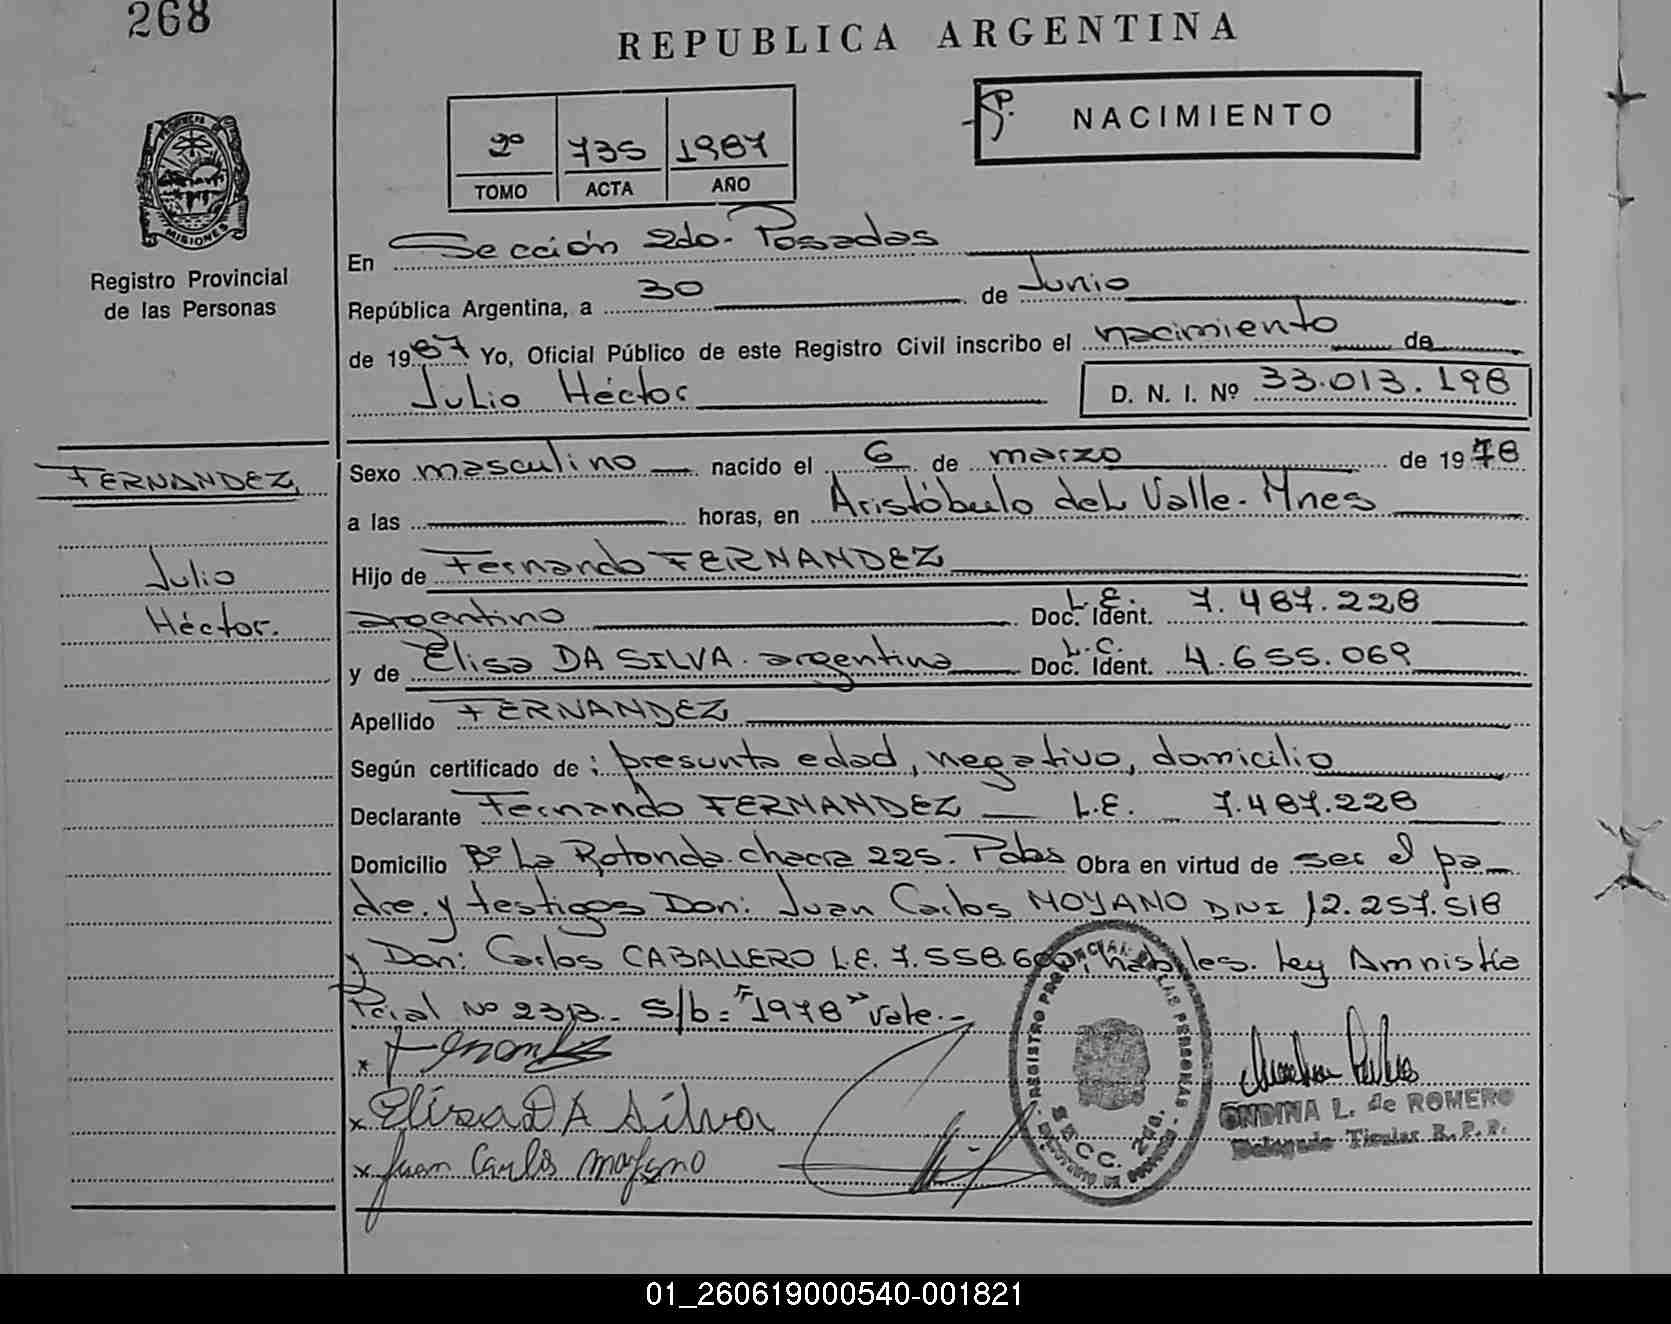 268
REPUBLICA ARGENTINA
2º 735 1987
TOMO ACTA AÑO
NACIMIENTO
MISIONES
Registro Provincial
de las Personas
En Sección 2da. Posadas
República Argentina, a 30 de Junio
de 1987 Yo, Oficial Público de este Registro Civil inscribo el nacimiento de
Julio Héctor D. N. I. Nº 33.013.198
FERNANDEZ
Julio
Héctor.
Sexo masculino nacido el 6 de marzo de 1978
a las horas, en Aristóbulo del Valle - Mnes
Hijo de Fernando FERNANDEZ
argentino L.E. Doc. Ident. 7.487.228
y de Elisa DA SILVA. argentina L.C. Doc. Ident. 4.655.069
Apellido FERNANDEZ
Según certificado de : presunta edad, negativo, domicilio
Declarante Fernando FERNANDEZ L.E. 7.487.228
Domicilio Bº La Rotonda. chacra 225. Pdas Obra en virtud de ser el pa-
dre. y testigos Don: Juan Carlos MOYANO DNI 12.257.518
y Don: Carlos CABALLERO L.E. 7.558.6 hábiles. Ley Amnistía
Pcial Nº 2313.- S/b = "1978" vale.-
x Fernandez
x Elisa DA Silva
x Juan Carlos Moyano
REGISTRO PROVINCIAL DE LAS PERSONAS
SECC. 2da.
ONDINA L. de ROMERO
Delegado Titular R.P.P.
01_260619000540-001821